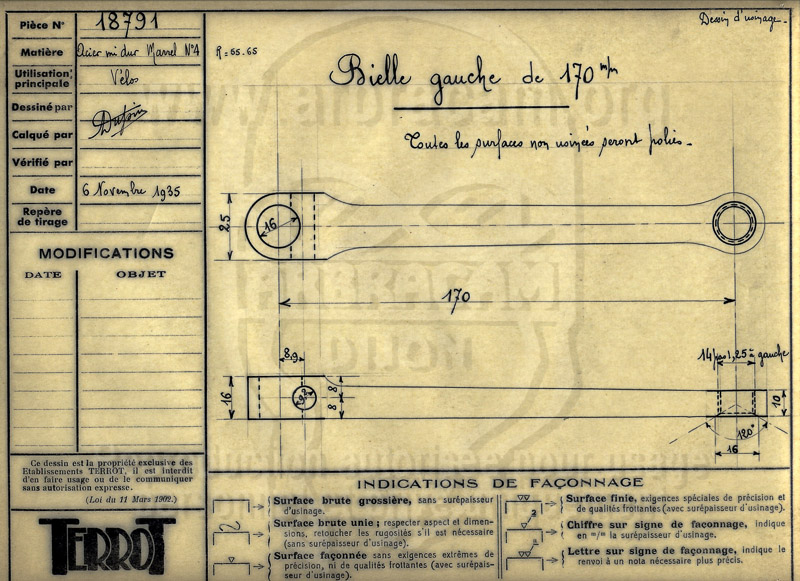 Pièce N° 18791
Matière Acier mi dur Marrel N°4
Utilisation principale Vélos
Dessiné par
Calqué par
Vérifié par
Date 6 Novembre 1935
Repère de tirage
MODIFICATIONS
DATE OBJET
Ce dessin est la propriété exclusive des
Etablissements TERROT, il est interdit
d'en faire usage ou de le communiquer
sans autorisation expresse.
(Loi du 11 Mars 1902.)
TERROT
Dessin d'usinage.
R = 55.65
Bielle gauche de 170 m/m
Toutes les surfaces non usinées seront polies.
25
16
170
8,9
14 pas 1,25 à gauche
16
8
8
10
120°
16
INDICATIONS DE FAÇONNAGE
Surface brute grossière, sans surépaisseur
d'usinage.
Surface brute unie; respecter aspect et dimen-
sions, retoucher les rugosités s'il est nécessaire
(sans surépaisseur d'usinage).
Surface façonnée sans exigences extrêmes de
précision, ni de qualités frottantes (avec surépais-
seur d'usinage).
Surface finie, exigences spéciales de précision et
de qualités frottantes (avec surépaisseur d'usinage).
Chiffre sur signe de faconnage, indique
en m/m la surépaisseur d'usinage.
Lettre sur signe de façonnage, indique le
renvoi à un nota nécessaire plus précis.